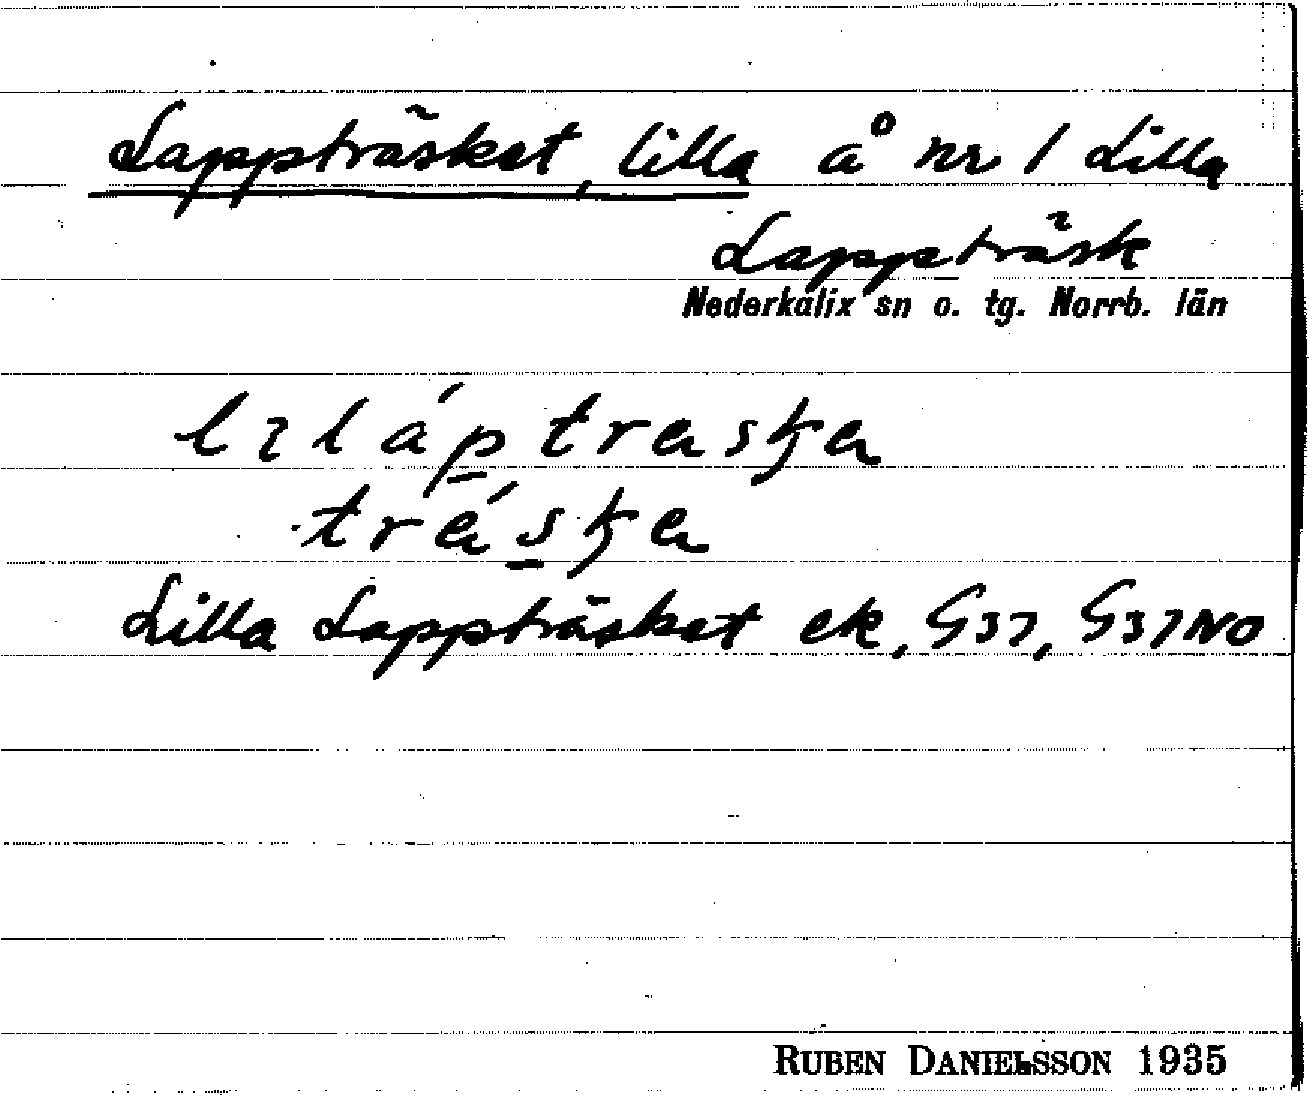 Lappträsket, lilla å nr 1 Lilla
Lappträsk
Nederkalix sn o. tg. Norrb. län
Lilla Lappträsket ek, G37, G37NO
RUBEN DANIELSSON 1935